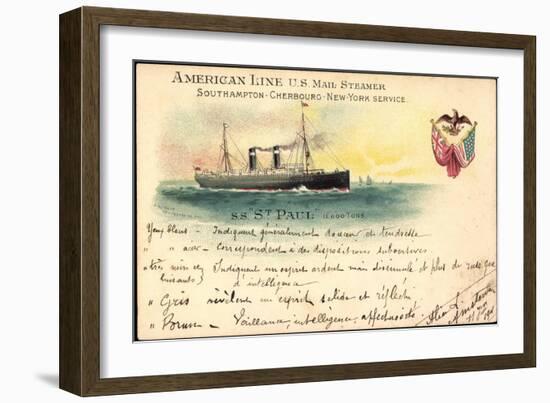 AMERICAN LINE U.S. MAIL STEAMER
SOUTHAMPTON - CHERBOURG - NEW-YORK SERVICE.
S.S. "ST PAUL" 11.600 TONS
Yeux bleus - Indiquent généralement douceur et tendresse
" " - Correspondent à des dispositions
" très noirs et Indiquent un esprit ardent mais dissimulé et plus de ruse que
luisants) d'intelligence
" Gris révèlent un esprit solide et réfléchi
" Bruns - Vaillance, intelligence,